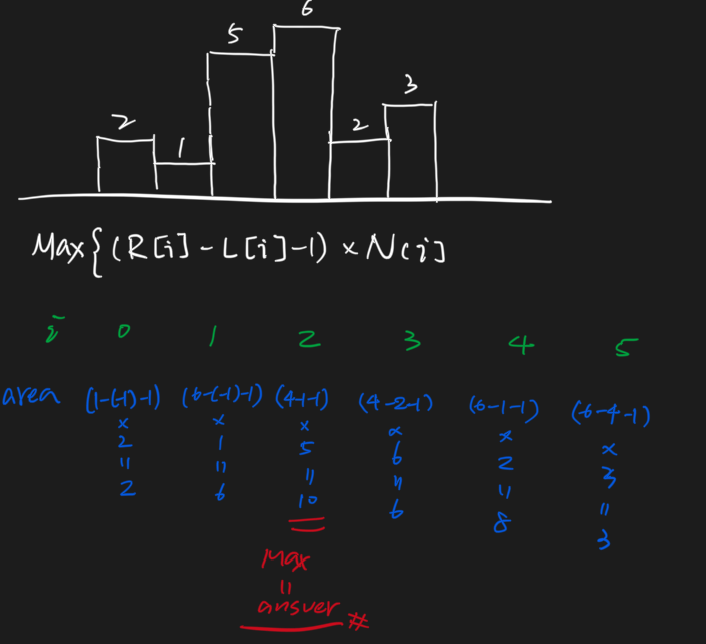 2 1 5 6 2 3
Max{(R[i]-L[i]-1)×N[i]
i 0 1 2 3 4 5
area (1-(-1)-1) (6-(-1)-1) (4-1-1) (4-2-1) (6-1-1) (6-4-1)
× × × × × ×
2 1 5 6 2 3
= = = = = =
2 6 10 6 8 3
Max
=
answer #